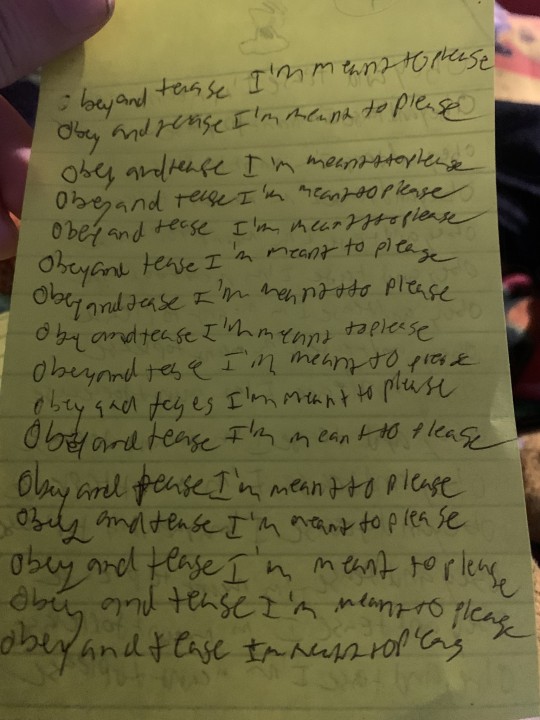 obey and tease I'm meant to please
Obey and tease I'm meant to please
Obey and tease I'm meant to please
Obey and tease I'm meant to please
Obey and tease I'm meant to please
Obey and tease I'm meant to please
Obey and tease I'm meant to please
Oby and tease I'm meant to please
Obey and tease I'm meant to please
Obey and teyes I'm meant to please
Obey and tease I'm meant to please
Obey and tease I'm meant to please
Obey and tease I'm meant to please
Obey and tease I'm meant to please
Obey and tease I'm meant to please
Obey and tease Im meant to pleas